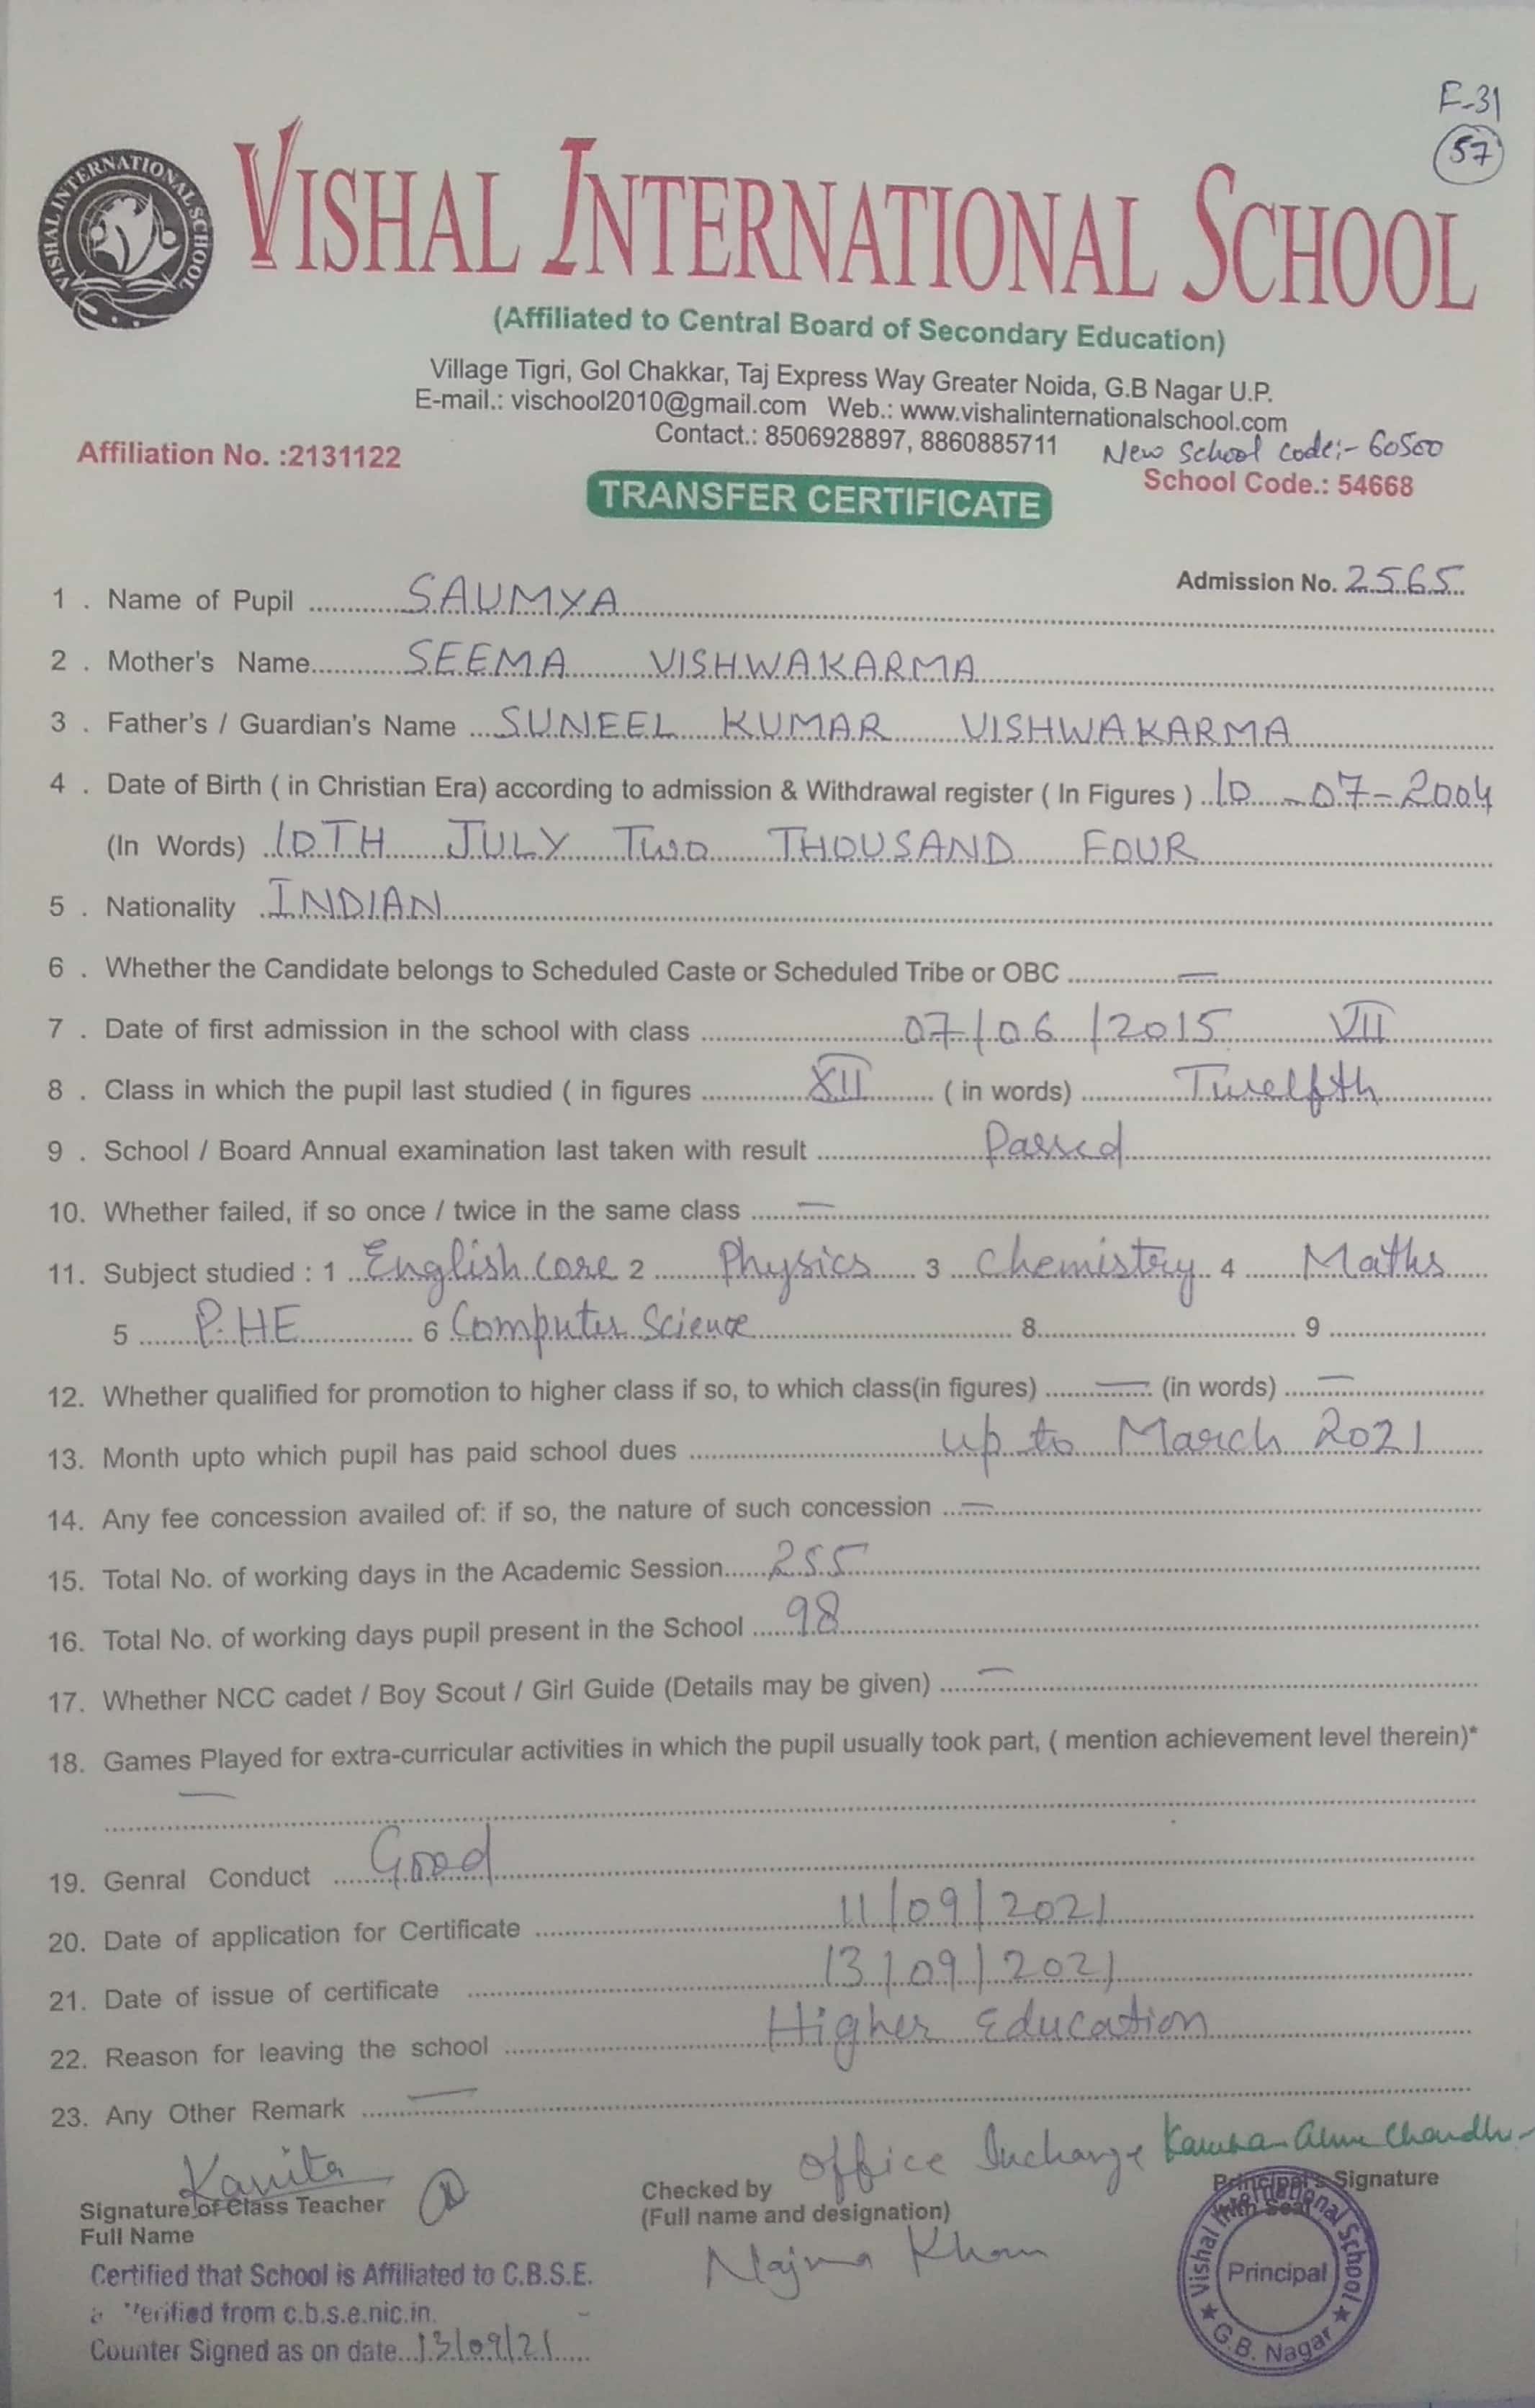 F-31
57
VISHAL INTERNATIONAL SCHOOL
VISHAL INTERNATIONAL SCHOOL
(Affiliated to Central Board of Secondary Education)
Village Tigri, Gol Chakkar, Taj Express Way Greater Noida, G.B Nagar U.P.
E-mail.: vischool2010@gmail.com Web.: www.vishalinternationalschool.com
Contact.: 8506928897, 8860885711 New School code:- 60500
Affiliation No. :2131122 School Code.: 54668
TRANSFER CERTIFICATE
Admission No. 2565
1 . Name of Pupil SAUMYA
2 . Mother's Name SEEMA VISHWAKARMA
3 . Father's / Guardian's Name SUNEEL KUMAR VISHWAKARMA
4 . Date of Birth ( in Christian Era) according to admission & Withdrawal register ( In Figures ) 10-07-2004
(In Words) 10TH JULY TWO THOUSAND FOUR
5 . Nationality INDIAN
6 . Whether the Candidate belongs to Scheduled Caste or Scheduled Tribe or OBC —
7 . Date of first admission in the school with class 07/06/2015 VII
8 . Class in which the pupil last studied ( in figures XII ( in words) Twelfth
9 . School / Board Annual examination last taken with result Passed
10. Whether failed, if so once / twice in the same class —
11. Subject studied : 1 English core 2 Physics 3 Chemistry 4 Maths
5 P.HE 6 Computer Science 8 9
12. Whether qualified for promotion to higher class if so, to which class(in figures) — (in words) —
13. Month upto which pupil has paid school dues up to March 2021
14. Any fee concession availed of: if so, the nature of such concession —
15. Total No. of working days in the Academic Session 255
16. Total No. of working days pupil present in the School 98
17. Whether NCC cadet / Boy Scout / Girl Guide (Details may be given) —
18. Games Played for extra-curricular activities in which the pupil usually took part, ( mention achievement level therein)*
—
19. Genral Conduct Good
20. Date of application for Certificate 11/09/2021
21. Date of issue of certificate 13/09/2021
22. Reason for leaving the school Higher Education
23. Any Other Remark —
Kavita
Signature of Class Teacher
Full Name
Office Incharge
Checked by
(Full name and designation)
Najma Khan
Principal's Signature
With Seal
Vishal International School
Principal
★ G.B. Nagar ★
Certified that School is Affiliated to C.B.S.E.
Verified from c.b.s.e.nic.in.
Counter Signed as on date 13/09/21